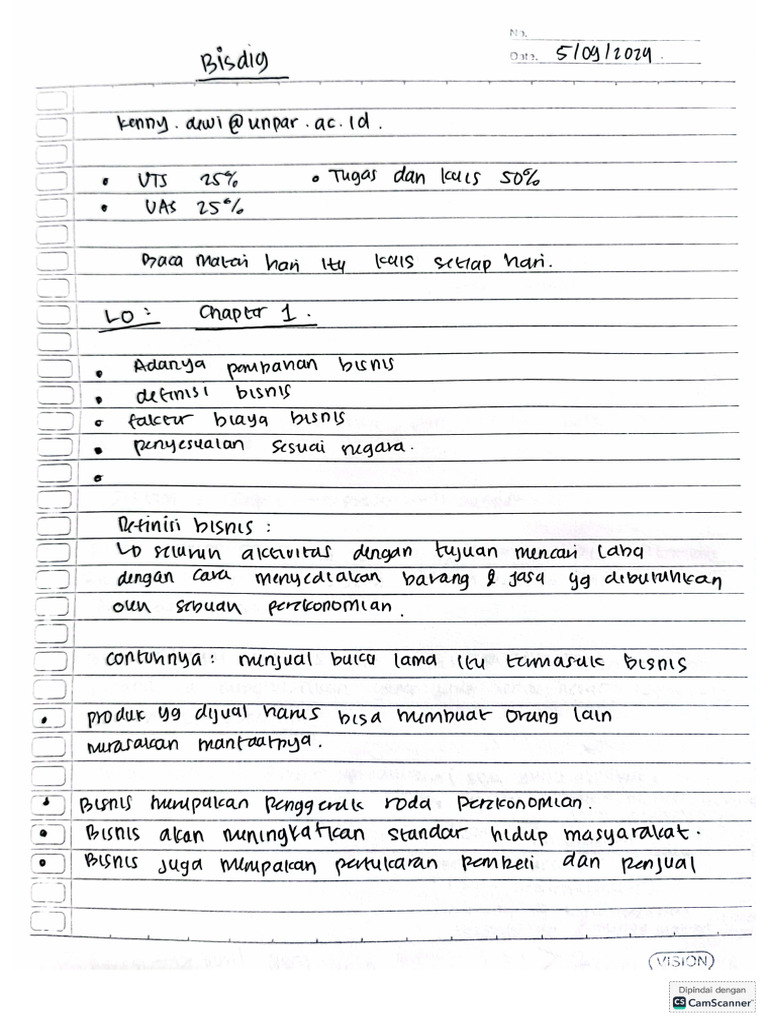 No.
Bisdig
Date. 5/09/2024.
kenny.dewi@unpar.ac.id.
• UTS 25% • Tugas dan kuis 50%
• UAS 25%
Baca materi hari itu kuis setiap hari.
LO: Chapter 1.
• Adanya perubahan bisnis
• definisi bisnis
• faktor biaya bisnis
• penyesuaian sesuai negara.
•
Definisi bisnis :
↳ seluruh aktivitas dengan tujuan mencari laba
dengan cara menyediakan barang & jasa yg dibutuhkan
oleh sebuah perekonomian.
contohnya : menjual buku lama itu termasuk bisnis
• produk yg dijual harus bisa membuat orang lain
merasakan manfaatnya.
• Bisnis merupakan penggerak roda perekonomian.
• Bisnis akan meningkatkan standar hidup masyarakat.
• Bisnis juga merupakan pertukaran pembeli dan penjual
VISION
Dipindai dengan
CS CamScanner